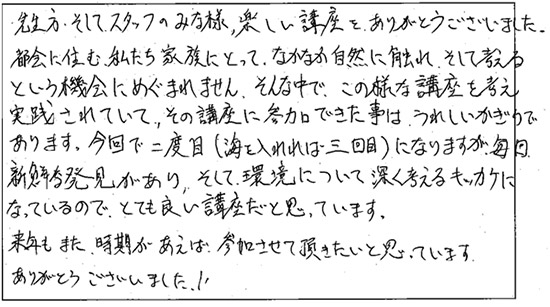 先生方、そして、スタッフのみな様、楽しい講座を、ありがとうございました。
都会に住む、私たち家族にとって、なかなか自然に触れ、そして考える
という機会にめぐまれません。そんな中で、この様な講座を考え
実践されていて、その講座に参加できた事は、うれしいかぎりで
あります。今回で二度目(海を入れれば三回目)になりますが、毎回
新鮮な発見があり、そして、環境について深く考えるキッカケに
なっているので、とても良い講座だと思っています。
来年もまた、時期があえば、参加させて頂きたいと思っています。
ありがとうございました!!